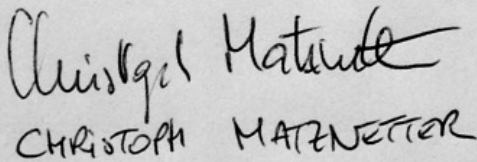 Christoph Matznetter
CHRISTOPH MATZNETTER